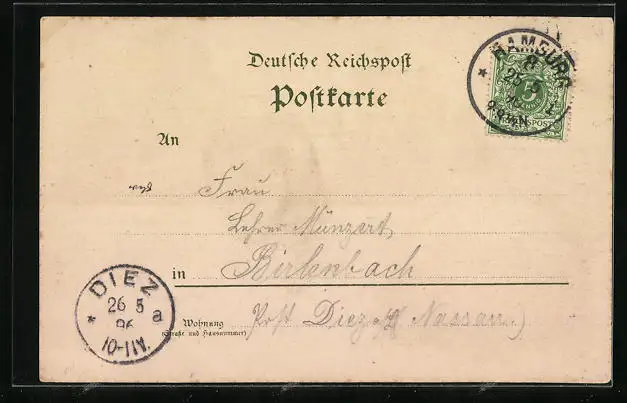 Deutsche Reichspost
Postkarte
HAMBURG
8
25 5
5
An
Frau
Lehrer Münzert,
in Birlenbach
Wohnung
(Straße und Hausnummer)
Post Diez Nassau.)
DIEZ
26 5
96 a
10-11V.